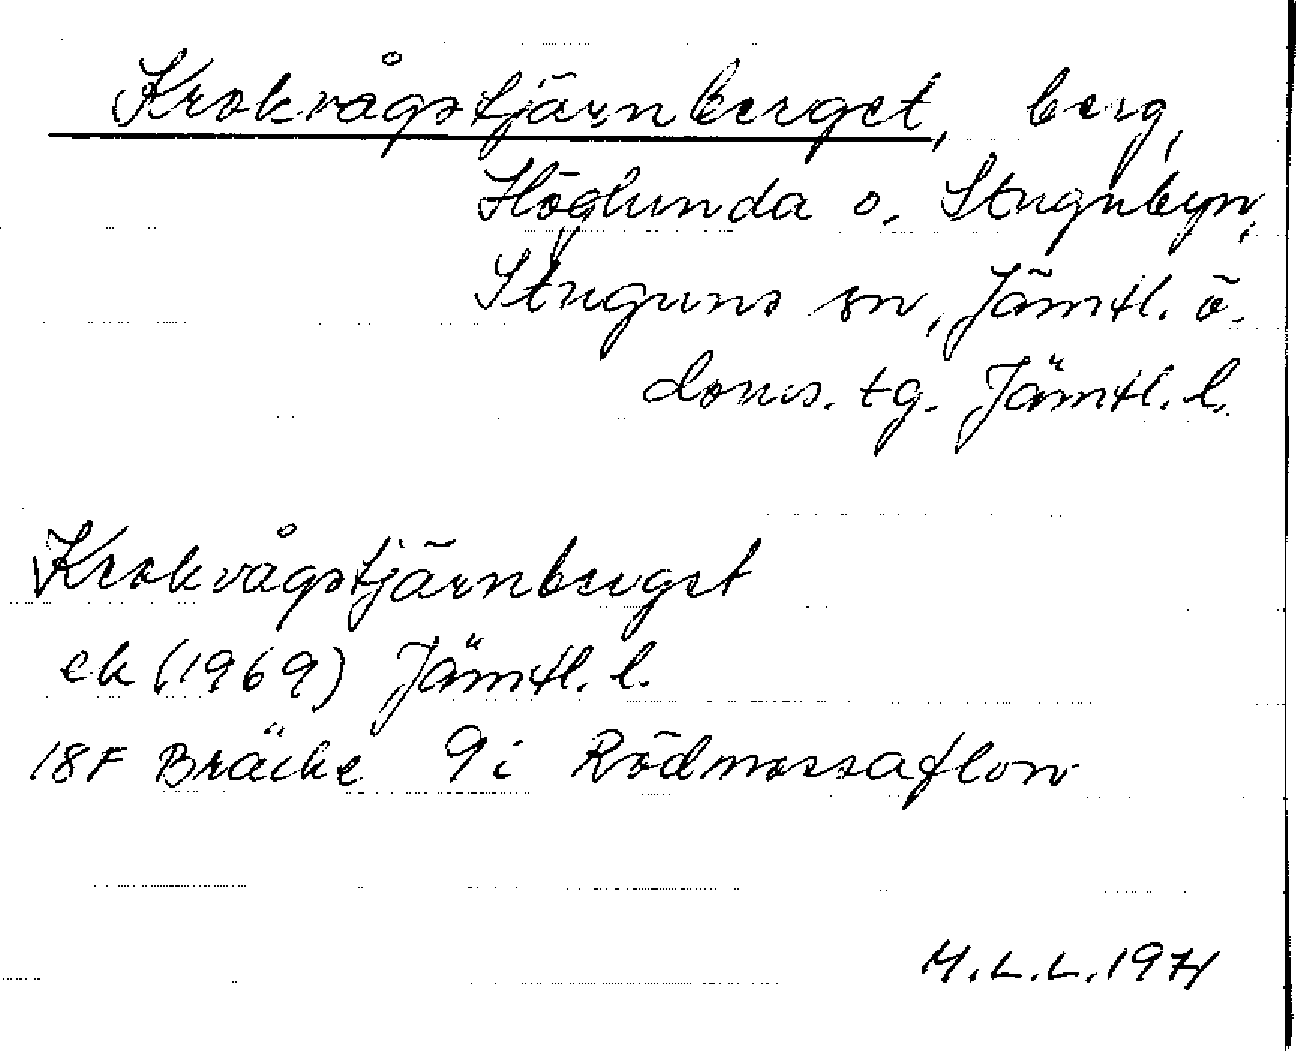 Krokvågstjärnberget, berg,
Höglunda o. Stugubyn,
Stuguns sn, Jämtl. ö.
doms. tg. Jämtl. l.
Krokvågstjärnberget
ek (1969) Jämtl. l.
18F Bräcke 9i Rödmossaflon
M.L.L. 1971